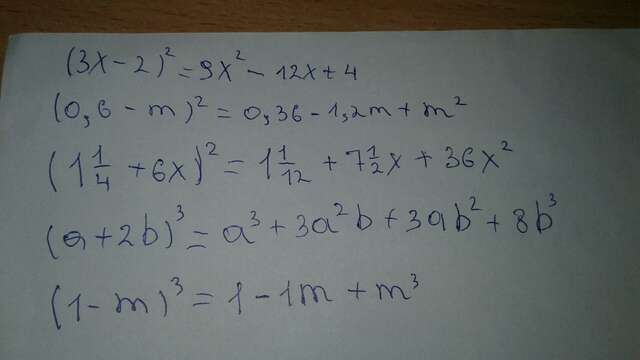 (3x-2)² = 9x² - 12x + 4
(0,6 - m)² = 0,36 - 1,2m + m²
(1 1/4 + 6x)² = 1 1/12 + 7 1/2 x + 36x²
(a+2b)³ = a³ + 3a²b + 3ab² + 8b³
(1-m)³ = 1 - 1m + m³